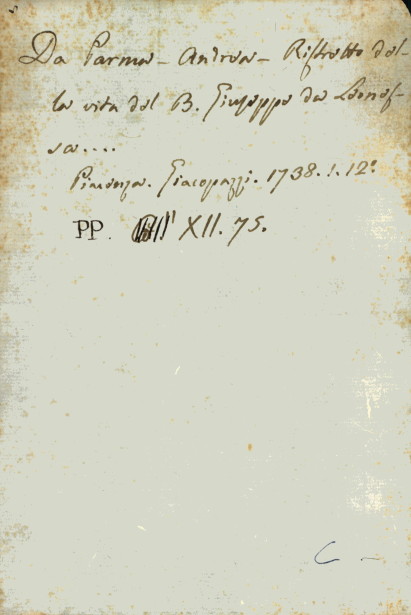 Da Parma - Andrea - Ristretto del-
la vita del B. Giuseppe da Leones-
sa....
Piacenza. Giacopazzi. 1738. 1. 12°
PP. XII. 75.